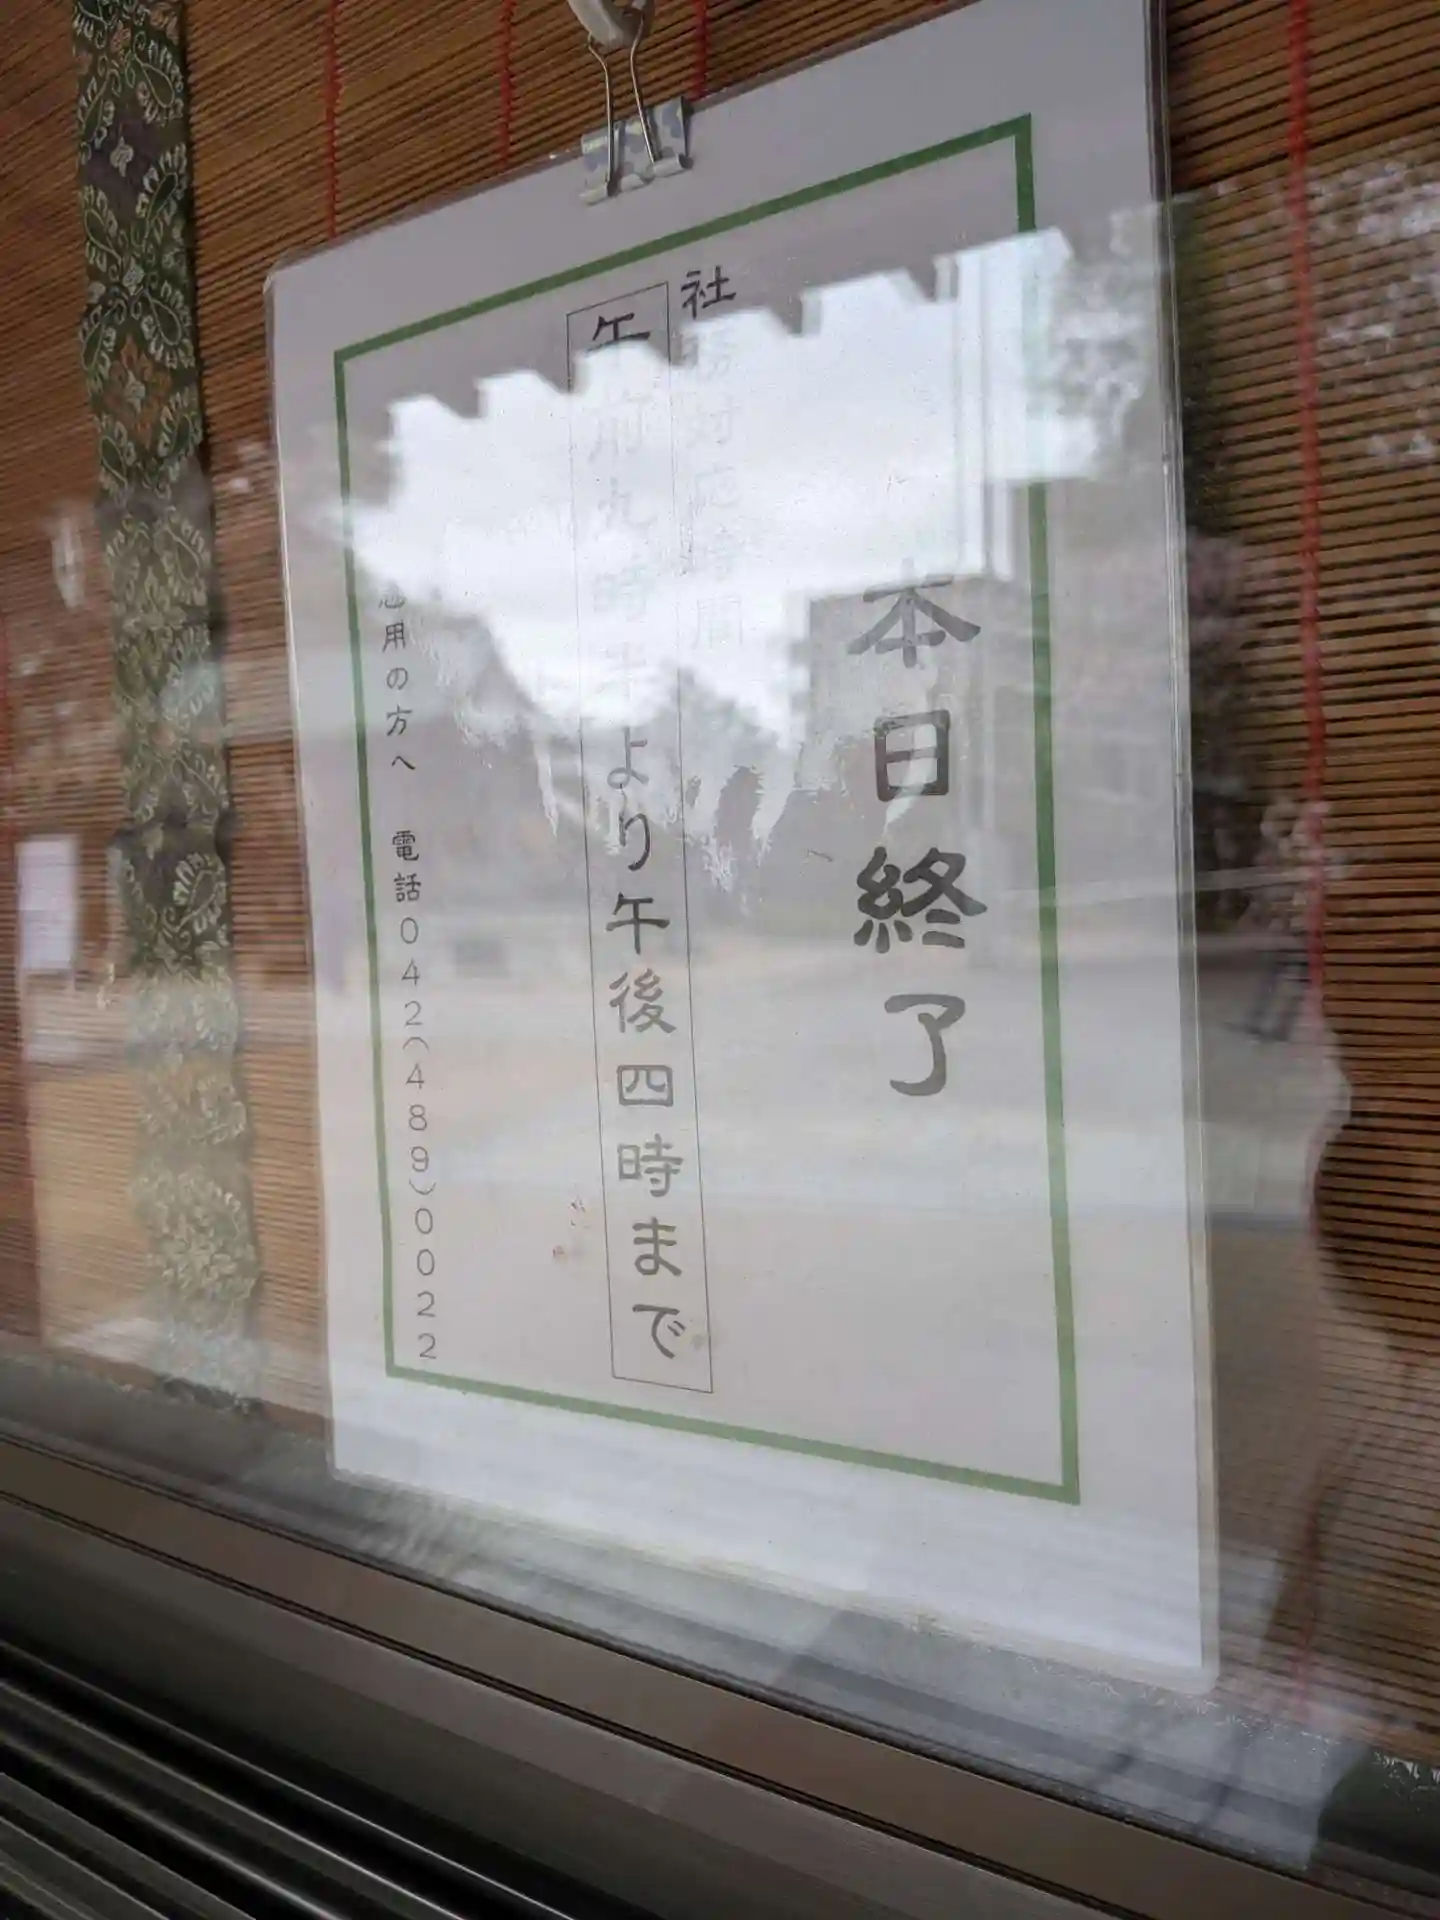 本日終了
社務対応時間
午前九時半より午後四時まで
急用の方へ 電話042(489)0022